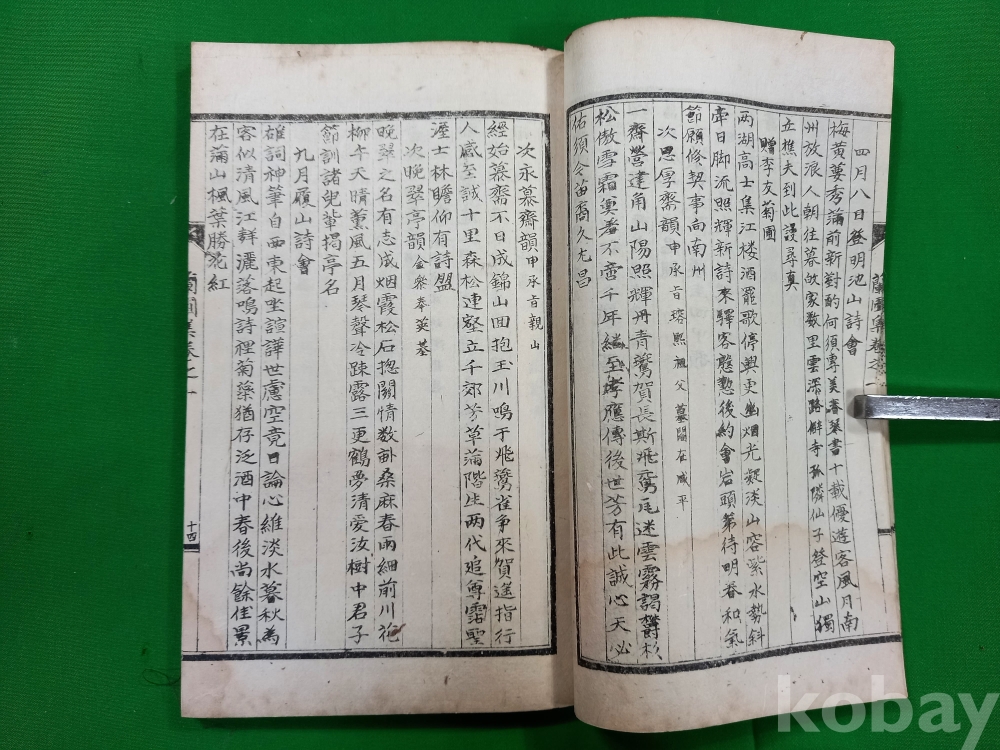 四月八日登明池山詩會
梅黃萋秀滿前新對酌何須專美春葉書十載優遊客風月南
州放浪人朝往暮故家數里雲深路僻寺孤隣仙子登空山獨
立樵夫到此謾尋真
贈李友菊圃
两湖高士集江楼酒罷歌停興更幽烟光凝淡山容紫水勢斜
牽日脚流照輝新詩來驛客慇懃後約會岩頭第待明春和氣
節願修契事向南州
次思孚齋韻申承旨瑢熙祖父墓閣在咸平
一齋營建甬山陽照輝丹青鶩賀長斯飛甍尾迷雲霧謁欝杉
松傲雪霜奠著不啻千年繼至孝應傳後世芳有此誠心天必
佑須令苗裔久尤昌
蘭圃集卷之一
次永慕齋韻申承旨親山
經始慕齋不日成錦山回抱玉川鳴于飛鶩雀争來賀進指行
人感至誠十里森松連壑立千郊芳草滿階生两代追尊霑聖
渥士林瞻仰有詩盟
次晚翠亭韻金參奉筴基
晚翠之名有志成烟霞松石揔關情数畝桑麻春雨細前川花
柳午天晴薰風五月琴聲冷踈露三更鶴夢清爱汝樹中君子
節訓諸兒輩揭亭名
九月鷹山詩會
雄詞神筆自西東起坐諠譁世慮空竟日論心維淡水暮秋為
容似清風江群灑落鳴詩裡菊蘂猶存泛酒中春後尚餘佳景
在滿山楓葉勝花紅
蘭圃集卷之一
十四
kobay